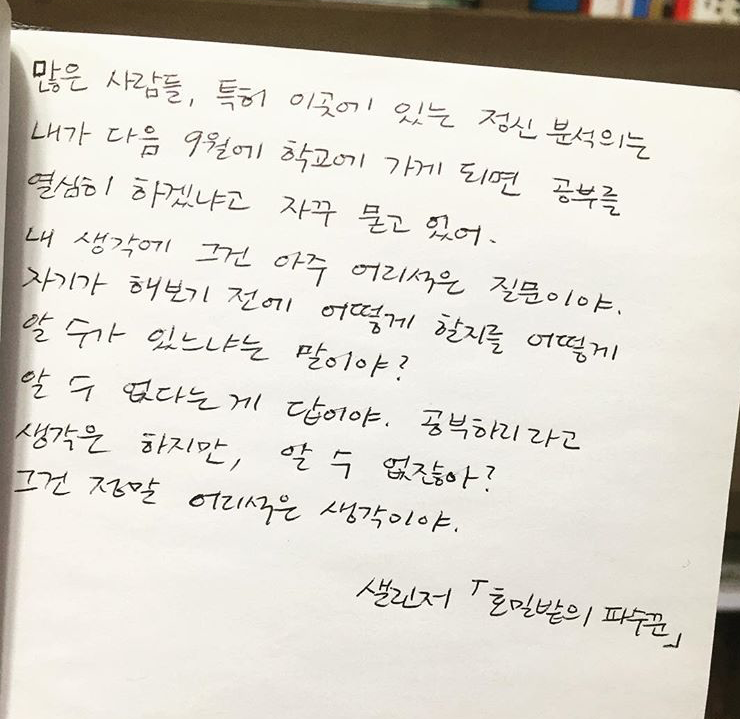 많은 사람들, 특히 이곳에 있는 정신 분석의는
내가 다음 9월에 학교에 가게 되면 공부를
열심히 하겠냐고 자꾸 묻고 있어.
내 생각에 그건 아주 어리석은 질문이야.
자기가 해보기 전에 어떻게 할지를 어떻게
알 수가 있느냐는 말이야?
알 수 없다는게 답이야. 공부하리라고
생각은 하지만, 알 수 없잖아?
그건 정말 어리석은 생각이야.
샐린저 「호밀밭의 파수꾼」